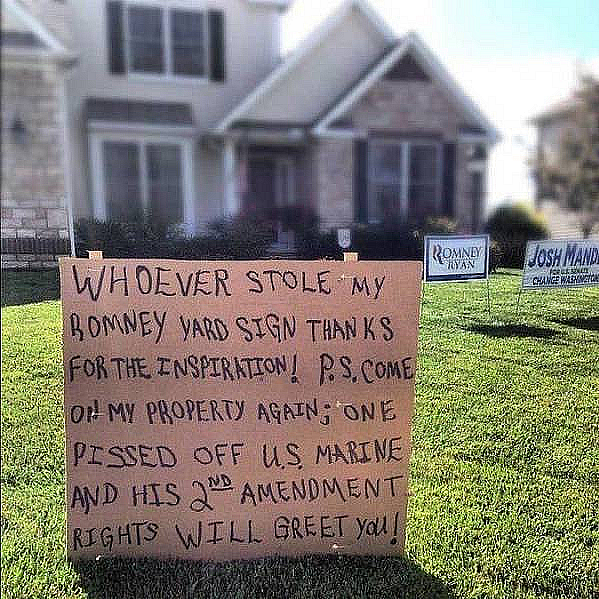 WHOEVER STOLE MY
ROMNEY YARD SIGN THANKS
FOR THE INSPIRATION! P.S. COME
ON MY PROPERTY AGAIN; ONE
PISSED OFF U.S. MARINE
AND HIS 2ND AMENDMENT
RIGHTS WILL GREET YOU!
ROMNEY
RYAN
JOSH MAND
FOR U.S. SENATE
CHANGE WASHINGTON